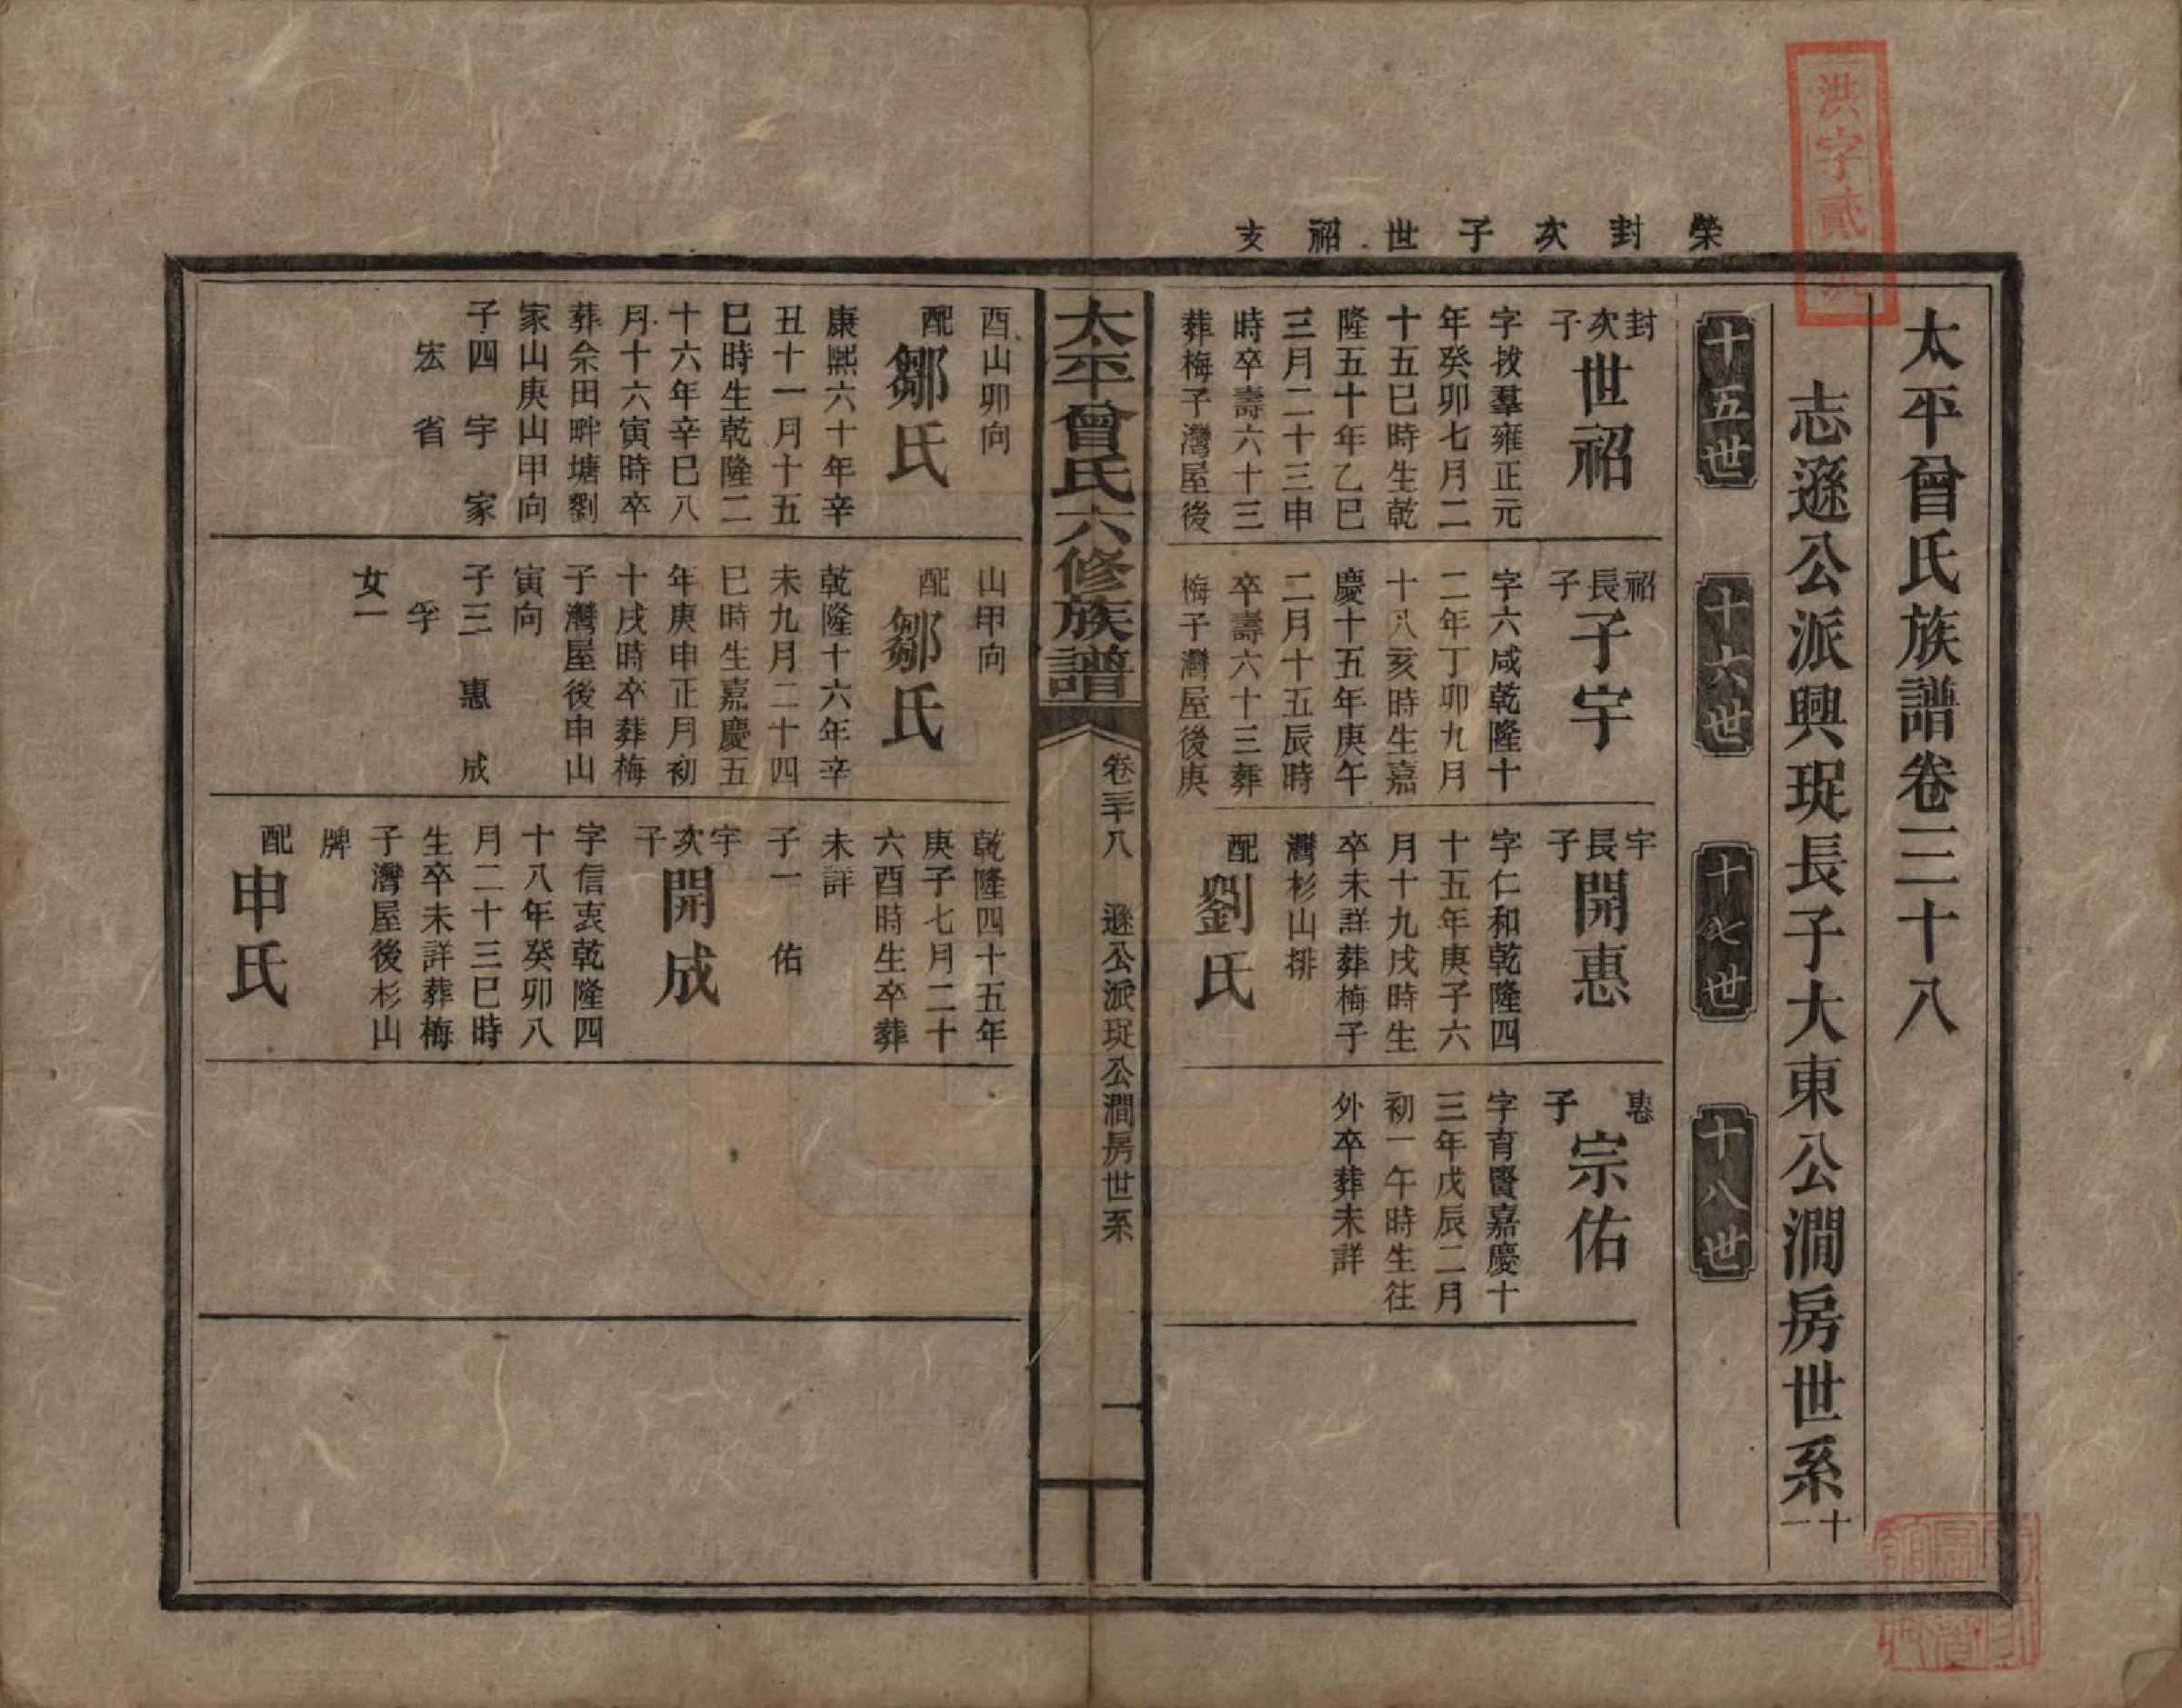 太平曾氏族譜卷三十八
志遜公派興珽長子大東公澗房世系十一
榮封次子世祒支
十五世
十六世
十七世
十八世
封次子世祒
字拔羣雍正元
年癸卯七月二
十五巳時生乾
隆五十年乙巳
三月二十三申
時卒壽六十三
葬梅子灣屋後
祒長子子宇
字六咸乾隆十
二年丁卯九月
十八亥時生嘉
慶十五年庚午
二月十五辰時
卒壽六十三葬
梅子灣屋後庚
宇長子開惠
字仁和乾隆四
十五年庚子六
月十九戌時生
卒未詳葬梅子
灣杉山排
配劉氏
惠子宗佑
字育賢嘉慶十
三年戊辰二月
初一午時生往
外卒葬未詳
太平曾氏六修族譜
卷三十八
遜公派珽公澗房世系
一
酉山卯向
配鄒氏
康熙六十年辛
丑十一月十五
巳時生乾隆二
十六年辛巳八
月十六寅時卒
葬余田畔塘劉
家山庚山甲向
子四 宇 家
宏 省
山甲向
配鄒氏
乾隆十六年辛
未九月二十四
巳時生嘉慶五
年庚申正月初
十戌時卒葬梅
子灣屋後申山
寅向
子三 惠 成
孚
女一
乾隆四十五年
庚子七月二十
六酉時生卒葬
未詳
子一 佑
宇次子開成
字信衷乾隆四
十八年癸卯八
月二十三巳時
生卒未詳葬梅
子灣屋後杉山
牌
配申氏
洪字貳